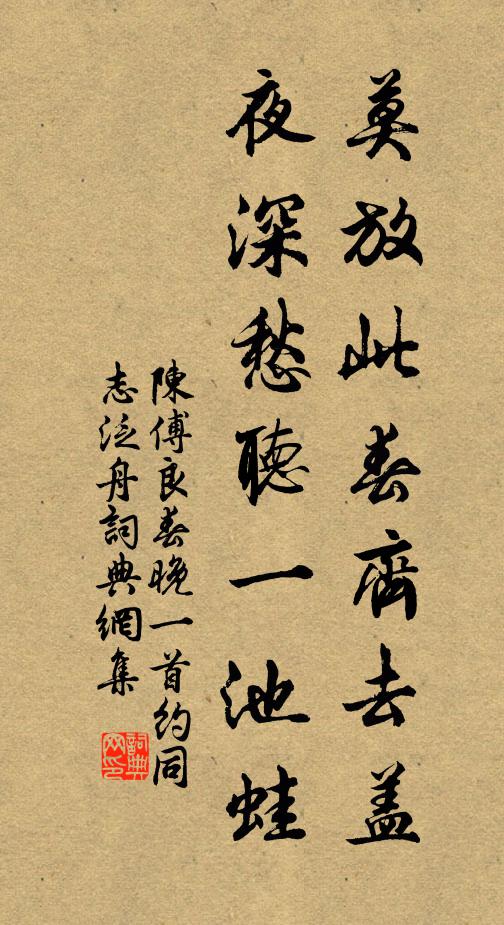 莫放此春齊去盖
夜深愁聽一池蛙
陳傅良春晚一首約同
志泛舟詞典網集
詞典
网印